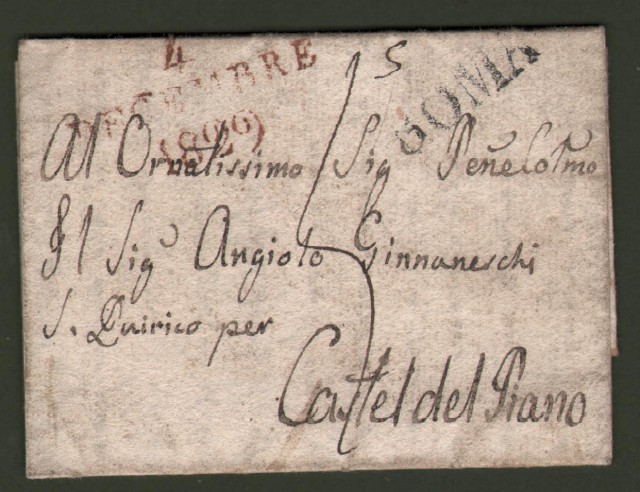 4
DECEMBRE
5
Al Ornatissimo Sig Pen̄e Colmo
Il Sigᵉ Angiolo Ginnaneschi
S. Quirico per
Castel del Piano